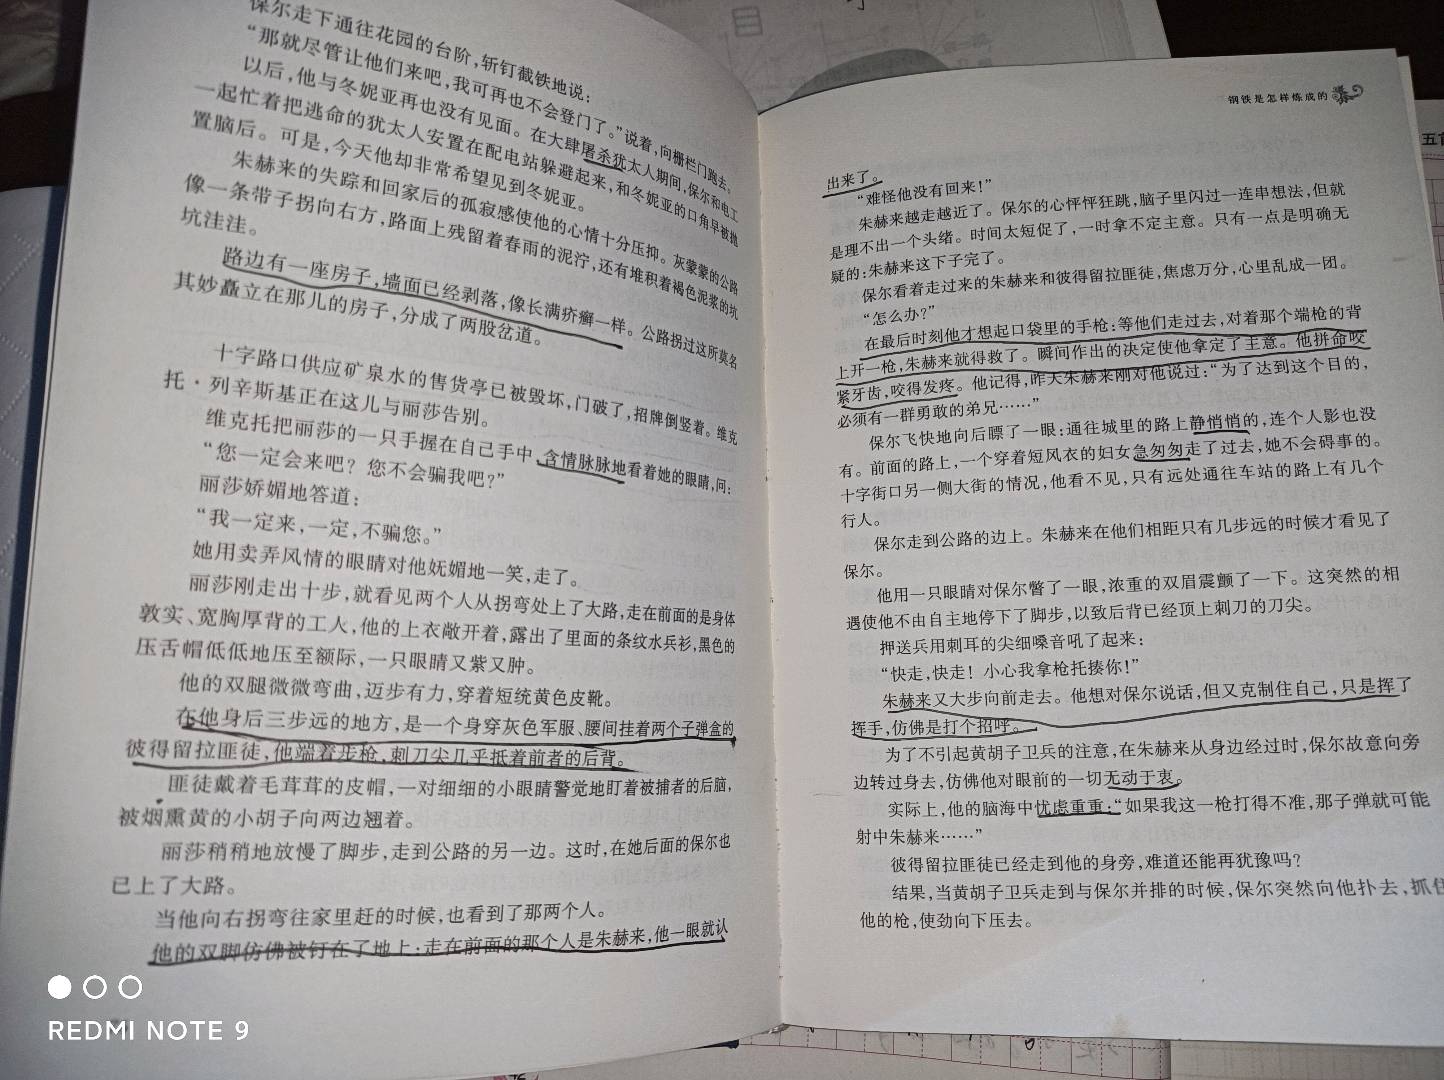 保尔走下通往花园的台阶,斩钉截铁地说:
“那就尽管让他们来吧,我可再也不会登门了。”说着,向栅栏门跑去。
以后,他与冬妮亚再也没有见面。在大肆屠杀犹太人期间,保尔和电工
一起忙着把逃命的犹太人安置在配电站躲避起来,和冬妮亚的口角早被抛
置脑后。可是,今天他却非常希望见到冬妮亚。
朱赫来的失踪和回家后的孤寂感使他的心情十分压抑。灰蒙蒙的公路
像一条带子拐向右方,路面上残留着春雨的泥泞,还有堆积着褐色泥浆的坑
坑洼洼。
路边有一座房子,墙面已经剥落,像长满疥癣一样。公路拐过这所莫名
其妙矗立在那儿的房子,分成了两股岔道。
十字路口供应矿泉水的售货亭已被毁坏,门破了,招牌倒竖着。维克
托·列辛斯基正在这儿与丽莎告别。
维克托把丽莎的一只手握在自己手中,含情脉脉地看着她的眼睛,问:
“您一定会来吧?您不会骗我吧?”
丽莎娇媚地答道:
“我一定来,一定,不骗您。”
她用卖弄风情的眼睛对他妩媚地一笑,走了。
丽莎刚走出十步,就看见两个人从拐弯处上了大路,走在前面的是身体
敦实、宽胸厚背的工人,他的上衣敞开着,露出了里面的条纹水兵衫,黑色的
压舌帽低低地压至额际,一只眼睛又紫又肿。
他的双腿微微弯曲,迈步有力,穿着短统黄色皮靴。
在他身后三步远的地方,是一个身穿灰色军服、腰间挂着两个子弹盒的
彼得留拉匪徒,他端着步枪,刺刀尖几乎抵着前者的后背。
匪徒戴着毛茸茸的皮帽,一对细细的小眼睛警觉地盯着被捕者的后脑,
被烟熏黄的小胡子向两边翘着。
丽莎稍稍地放慢了脚步,走到公路的另一边。这时,在她后面的保尔也
已上了大路。
当他向右拐弯往家里赶的时候,也看到了那两个人。
他的双脚仿佛被钉在了地上:走在前面的那个人是朱赫来,他一眼就认
钢铁是怎样炼成的
出来了。
“难怪他没有回来!”
朱赫来越走越近了。保尔的心怦怦狂跳,脑子里闪过一连串想法,但就
是理不出一个头绪。时间太短促了,一时拿不定主意。只有一点是明确无
疑的:朱赫来这下子完了。
保尔看着走过来的朱赫来和彼得留拉匪徒,焦虑万分,心里乱成一团。
“怎么办?”
在最后时刻他才想起口袋里的手枪:等他们走过去,对着那个端枪的背
上开一枪,朱赫来就得救了。瞬间作出的决定使他拿定了主意。他拼命咬
紧牙齿,咬得发疼。他记得,昨天朱赫来刚对他说过:“为了达到这个目的,
必须有一群勇敢的弟兄……”
保尔飞快地向后瞟了一眼:通往城里的路上静悄悄的,连个人影也没
有。前面的路上,一个穿着短风衣的妇女急匆匆走了过去,她不会碍事的。
十字街口另一侧大街的情况,他看不见,只有远处通往车站的路上有几个
行人。
保尔走到公路的边上。朱赫来在他们相距只有几步远的时候才看见了
保尔。
他用一只眼睛对保尔瞥了一眼,浓重的双眉震颤了一下。这突然的相
遇使他不由自主地停下了脚步,以致后背已经顶上刺刀的刀尖。
押送兵用刺耳的尖细嗓音吼了起来:
“快走,快走!小心我拿枪托揍你!”
朱赫来又大步向前走去。他想对保尔说话,但又克制住自己,只是挥了
挥手,仿佛是打个招呼。
为了不引起黄胡子卫兵的注意,在朱赫来从身边经过时,保尔故意向旁
边转过身去,仿佛他对眼前的一切无动于衷。
实际上,他的脑海中忧虑重重:“如果我这一枪打得不准,那子弹就可能
射中朱赫来……”
彼得留拉匪徒已经走到他的身旁,难道还能再犹豫吗?
结果,当黄胡子卫兵走到与保尔并排的时候,保尔突然向他扑去,抓住
他的枪,使劲向下压去。
REDMI NOTE 9